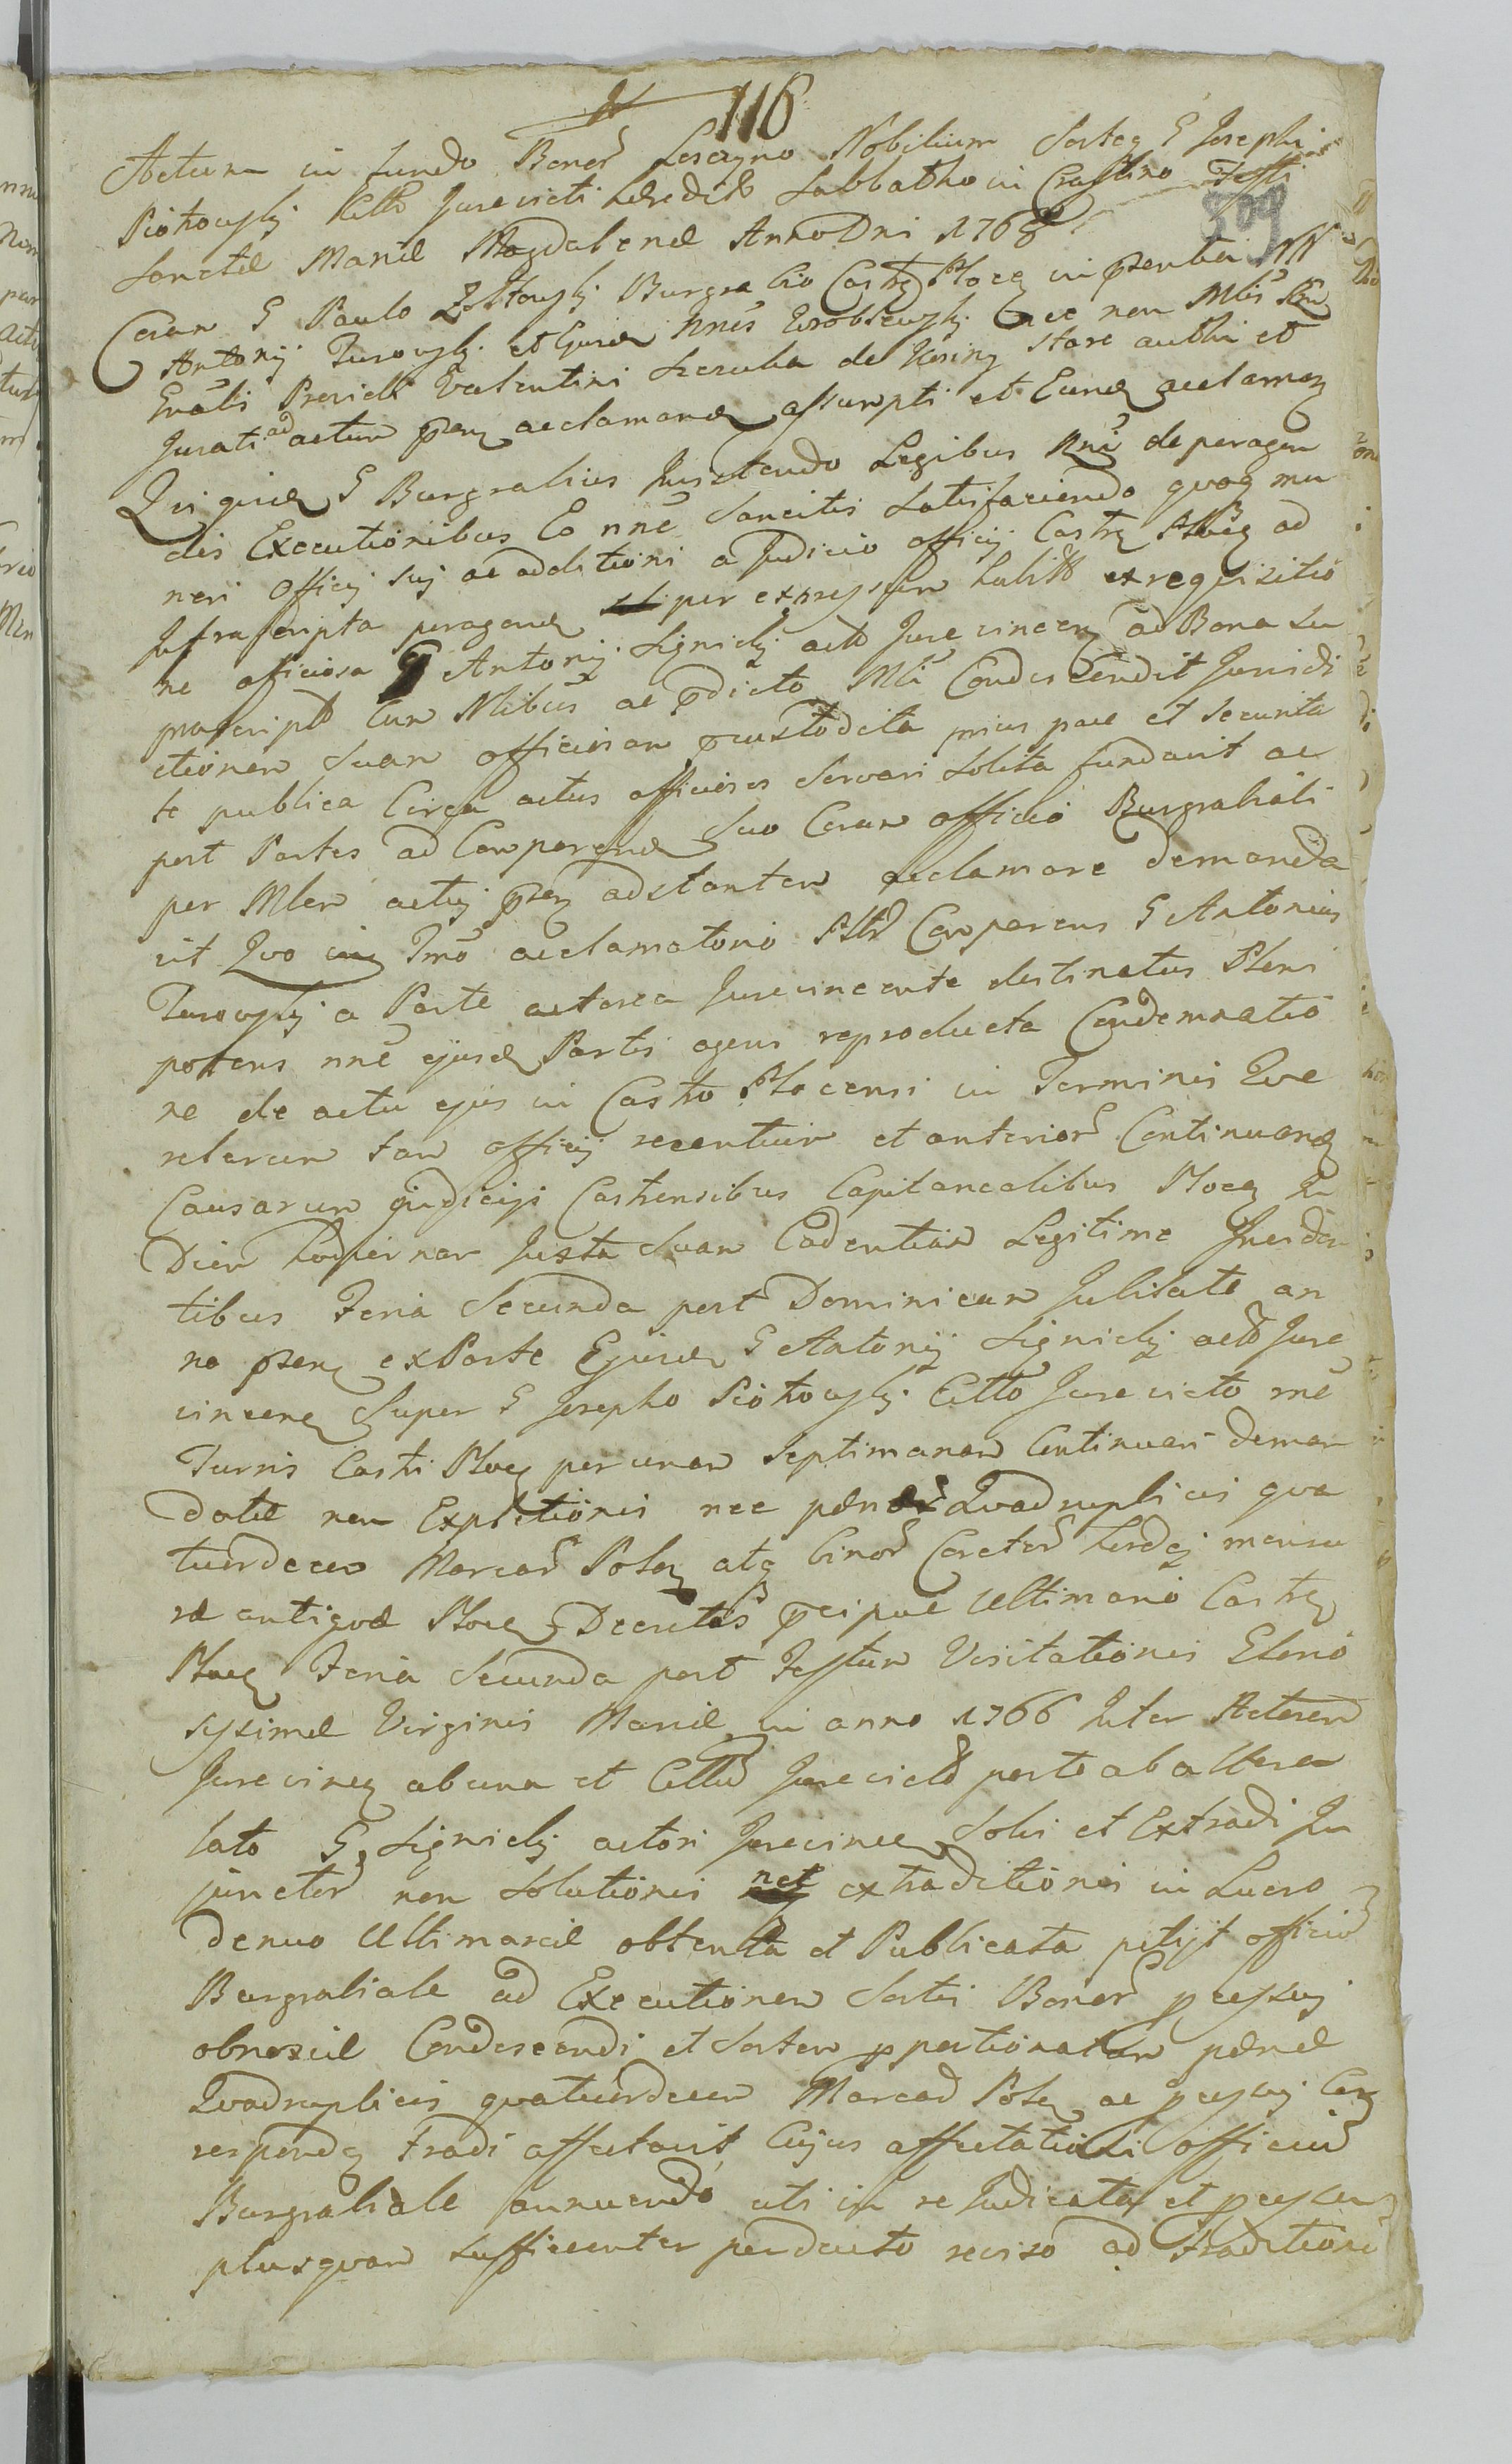 116
Actum in fundo Bonor Lesczyno Nobilium Sorteq G Josephi
Piotrowskj Citti Jurevicti hæredit Sabbatho in Crastino Festi
Sanctæ Mariæ Magdalenæ Anno Dni 1768
309
Coram G Paulo Burgrabio Castrq Plocq in pzentia NN
Antonij Turowskj et Nnis nec non Mlis Rnq
Gnalis Providi Valentini de stare autthi et
Jurati ad actum pzenq acclamandq assumpti et Eundq acclamanq
Qui quidq G Burgrabius Insistendo Legibus Rnj de peragen
dis Executionibus Eo nne Sancitis Satisfaciendo quoq mu
neri officij suj ac additioni a Judicio officij Castrq Plocq ad
Infrascripta peragendq per expressum habitæ ex requisitio
ne officiosa G Antonij Lignickj actor Jure vincenq ad Bona su
prascripta cum Nlibus ac pdicto Mli Condescendit Jurisdi
ctionem Suam officiosam pcustodita prius pace et securita
te publica Circa actus officiosos servari solita fundavit ac
post Partes ad Comparendq Suo Coram officio Burgrabiali
per Mlem actuj pzenq adstantem acclamare demanda
vit Quo Tmo acclamatorio Attd Comparens G Antonius
Turowskj a Parte actorea Jurevincente destinatus Pleni
potens nne ejusdq Partis agens reproducta Condemnatio
ne de actu ejus in Castro Plocensi in Terminis Que
relarum tam officij recentium et anterior Continuandq
Causarum judicijs Castrensibus Capitanealibus Plocq In
Diem hodiernam Juxta Suam Cadentiam Legitime Inciden
tibus Feria Secunda post Dominicam Jubilate an
no pzenq ex Parte Ejusdq G Antonij Lignickj actor Jure
vincenq Super G Josepho Piotrowskj Citto Jurevicto rne
Turris Castri Plocq per unam Septimanam Continuari deman
datæ non Expletionis nec pænar Quadruplicis qua
tuordecem Marcar Polq atq binor Coretor hordej mensu
ræ antiquæ Plocq Decretis pcipue Ultimario Castrq
Plocq Feria Secunda post Festum Visitationis Glorio
sissimæ Virginis Mariæ in anno 1766 Inter Actorem
Jurevinq ab una et Cittũ Jurevictũ parte ab altera
lato G Lignickj actori Jurevincq Solvi et Extradi In
junctor non Solutionis nec extraditionis in Lucro
denuo Ultimariæ obtenta et Publicata petijt officiũ
Burgrabiale ad Executionem Sortis Bonor
obnoxiæ Condescendi et Sortem pportionatam pænæ
Quadruplicis quatuordecem Marcar Polq ac
respondq tradi affectavit Cujus affectationi officiũ
Burgrabiale annuendo uti in re Judicata et
plusquam sufficienter perducto reviso ad traditionẽ